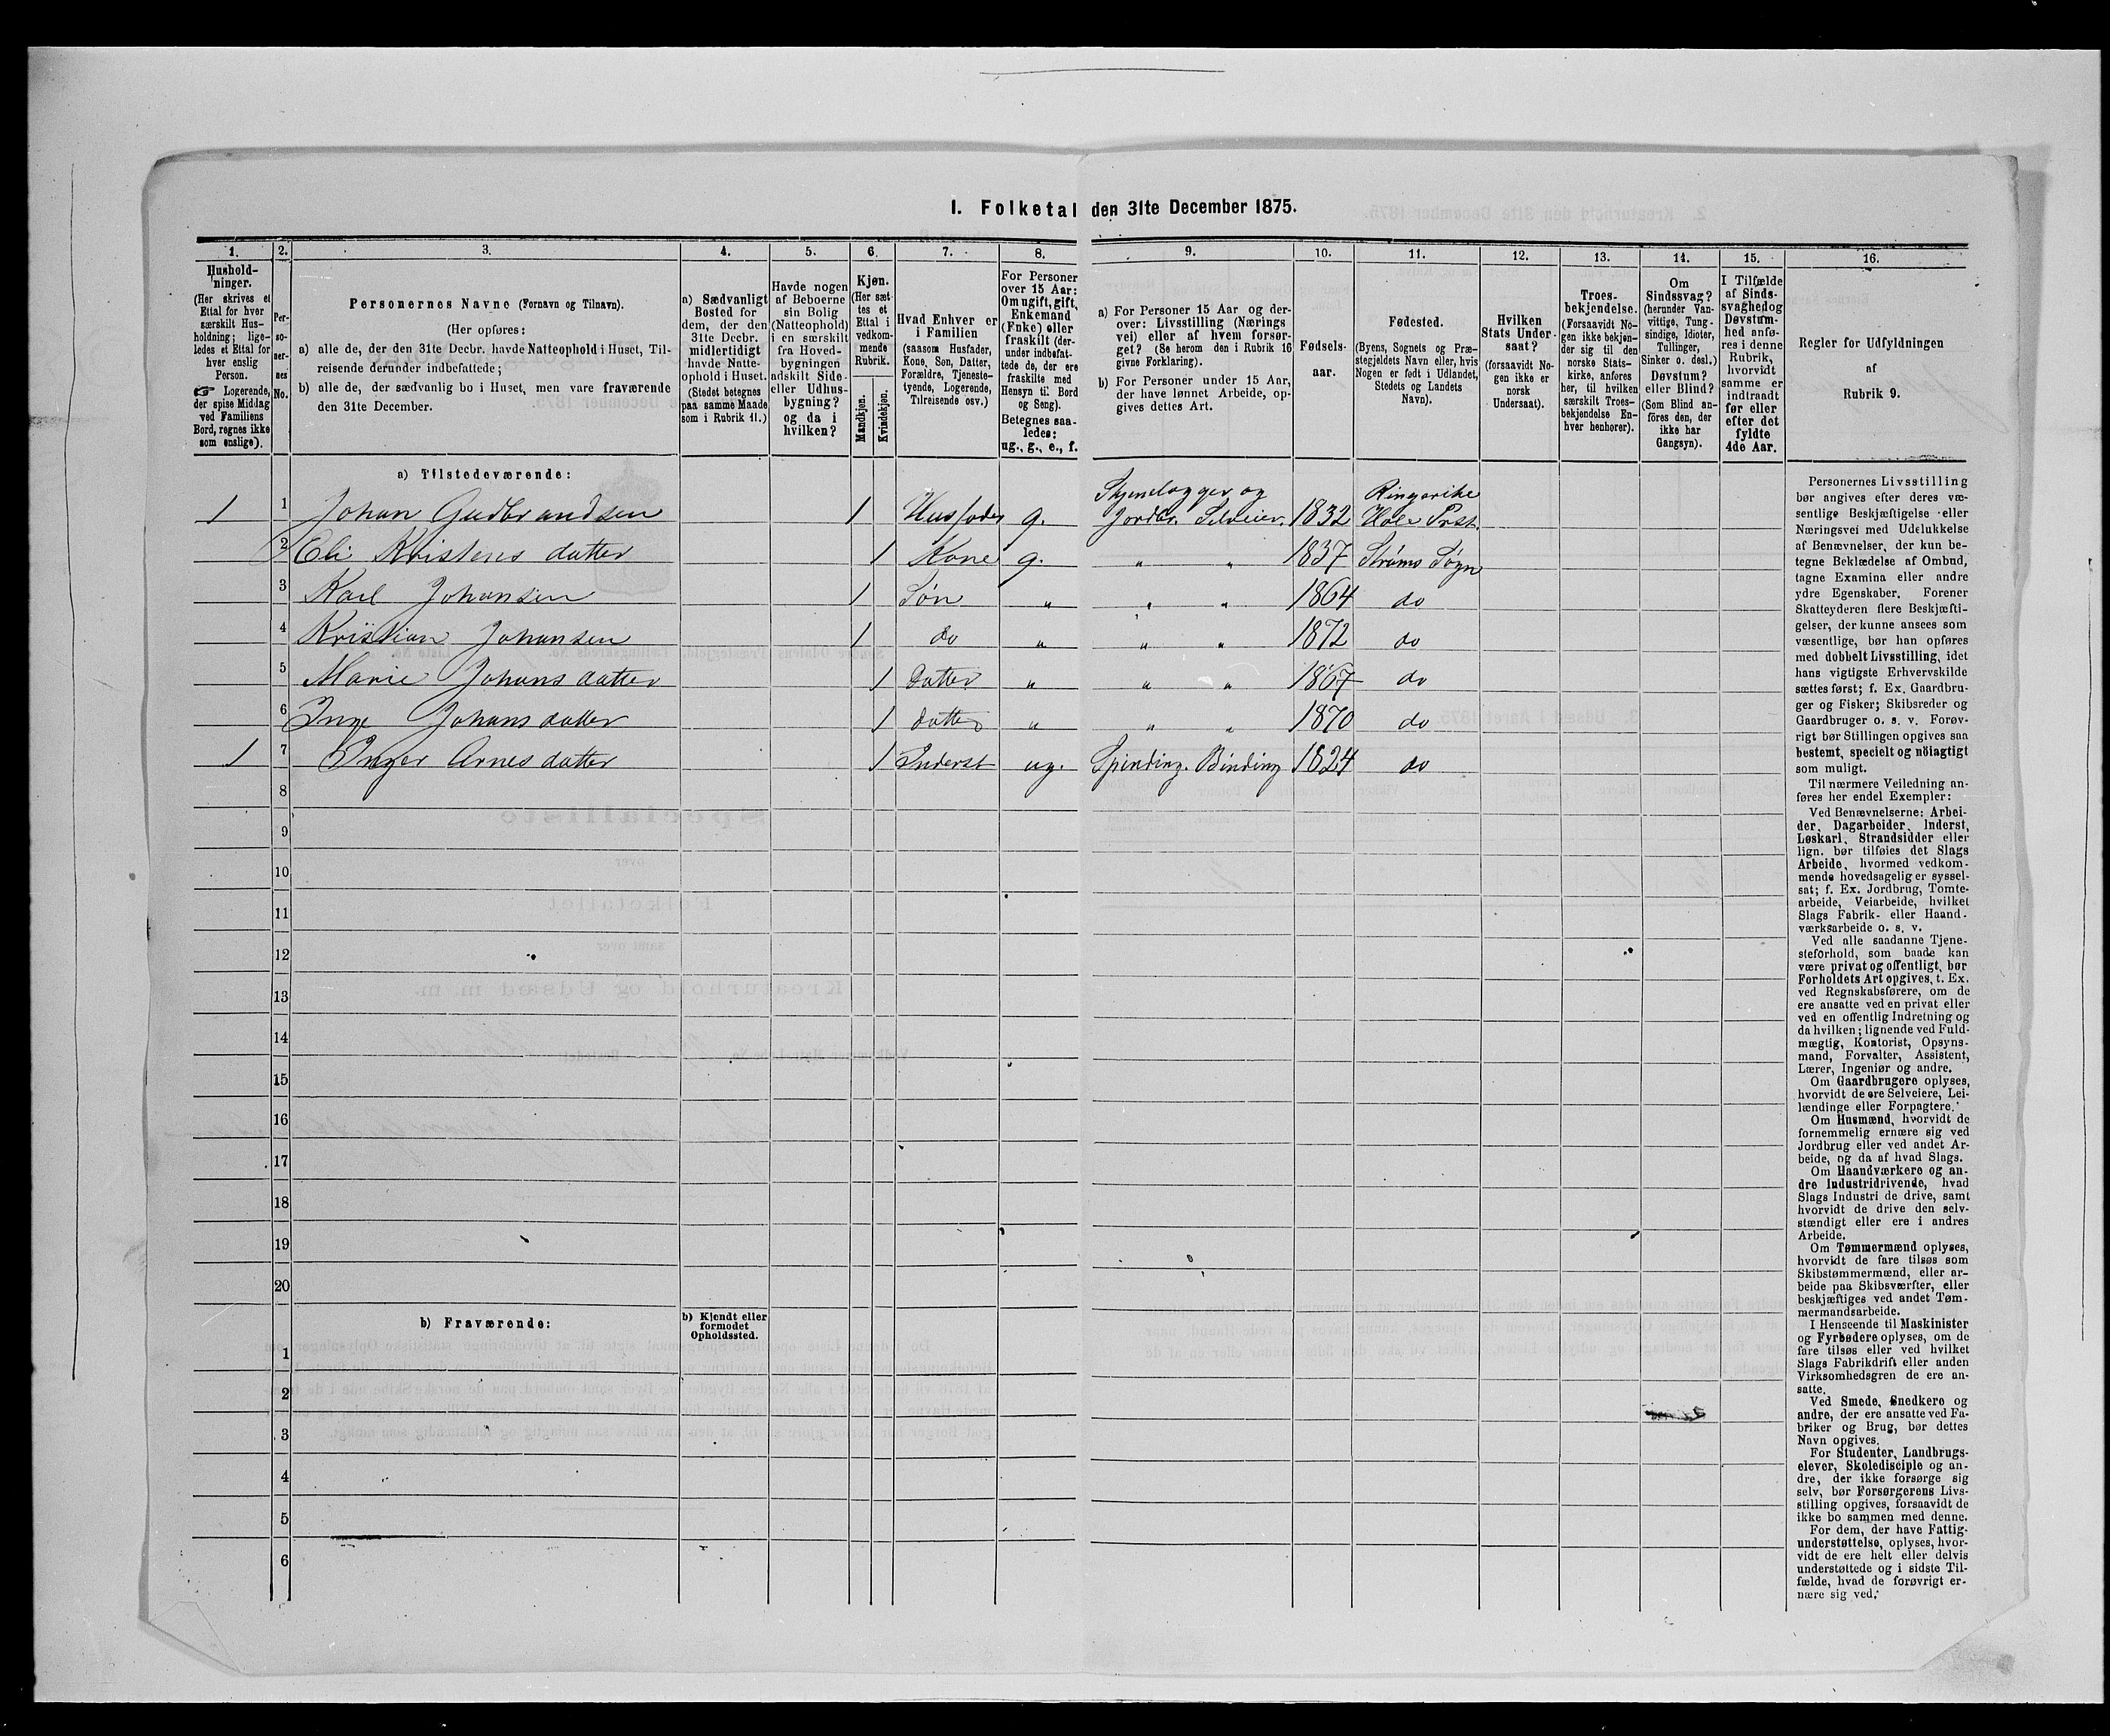 I. Folketal den 31te December 1875.
1.
2.
3.
4.
5.
6.
7.
8.
9.
10.
11.
12.
13.
14.
15.
16.
Hushold-
ninger.
(Her skrives et
Ettal for hver
særskilt Hus-
holdning; lige-
ledes et Ettal for
hver enslig
Person.
☞ Logerende,
der spise Middag
ved Familiens
Bord, regnes ikke
som enslige).
Per-
so-
ner-
nes
No.
Personernes Navne (Fornavn og Tilnavn).
(Her opføres:
a) alle de, der den 31te Decbr. havde Natteophold i Huset, Til-
reisende derunder indbefattede;
b) alle de, der sædvanlig bo i Huset, men vare fraværende
den 31te December.
a) Sædvanligt
Bosted for
dem, der den
31te Decbr.
midlertidigt
havde Natte-
ophold i Huset.
(Stedet betegnes
paa samme Maade
som i Rubrik 11.)
Havde nogen
af Beboerne
sin Bolig
(Natteophold)
i en særskilt
fra Hoved-
bygningen
adskilt Side-
eller Udhus-
bygning?
og da i
hvilken?
Kjøn.
(Her sæt-
tes et
Ettal i
vedkom-
mende
Rubrik.
Mandkjøn.
Kvindekjøn.
Hvad Enhver er
i Familien
(saasom Husfader,
Kone, Søn, Datter,
Forældre, Tjeneste-
tyende, Logerende,
Tilreisende osv.)
For Personer
over 15 Aar:
Om ugift, gift,
Enkemand
(Enke) eller
fraskilt (der-
under indbefat-
tede de, der ere
fraskilte med
Hensyn til Bord
og Seng).
Betegnes saa-
ledes:
ug., g., e., f.
a) For Personer 15 Aar og der-
over: Livsstilling (Nærings
vei) eller af hvem forsør-
get? (Se herom den i Rubrik 16
givne Forklaring).
b) For Personer under 15 Aar,
der have lønnet Arbeide, op-
gives dettes Art.
Fødsels-
aar.
Fødested.
(Byens, Sognets og Præ-
stegjeldets Navn eller, hvis
Nogen er født i Udlandet,
Stedets og Landets
Navn).
Hvilken
Stats Under-
saat?
(forsaavidt No-
gen ikke er
norsk
Undersaat).
Troes-
bekjendelse.
(Forsaavidt No-
gen ikke bekjen-
der sig til den
norske Stats-
kirke, anføres
her, til hvilken
særskilt Troes-
bekjendelse En-
hver henhører).
Om
Sindssvag?
(herunder Van-
vittige, Tung-
sindige, Idioter,
Tullinger,
Sinker o. desl.)
Døvstum?
eller Blind?
(Som Blind an-
føres den, der
ikke har
Gangsyn).
I Tilfælde
af Sinds-
svaghed og
Døvstum-
hed anfø-
res i denne
Rubrik,
hvorvidt
samme er
indtraadt
før eller
efter det
fyldte
4de Aar.
Regler for Udfyldningen
af
Rubrik 9.
a) Tilstedeværende:
1 1 Johan Gudbrandsen 1 Husfader g. Skjenelægger og Jordbr. Selveier. 1832 Ringerike Hole Prst.
2 Oli Kristensdatter 1 Kone g. " " 1837 Strøms Sogn
3 Karl Johansen 1 Søn " " " 1864 do
4 Kristian Johansen 1 do " " " 1872 do
5 Marie Johansdatter 1 Datter " " " 1867 do
6 Inge Johansdatter 1 datter " " " 1870 do
1 7 Inger Arnesdatter 1 Inderst ug. Spinding. Binding 1824 do
8
9
10
11
12
13
14
15
16
17
18
19
20
b) Fraværende:
b) Kjendt eller
formodet
Opholdssted.
1
2
3
4
5
6
Personernes Livsstilling
bør angives efter deres væ-
sentlige Beskjæftigelse eller
Næringsvei med Udelukkelse
af Benævnelser, der kun be-
tegne Beklædelse af Ombud,
tagne Examina eller andre
ydre Egenskaber. Forener
Skatteyderen flere Beskjæfti-
gelser, der kunne ansees som
væsentlige, bør han opføres
med dobbelt Livsstilling, idet
hans vigtigste Erhvervskilde
sættes først; f. Ex. Gaardbru-
ger og Fisker; Skibsreder og
Gaardbruger o. s. v. Forøv-
rigt bør Stillingen opgives saa
bestemt, specielt og nöiagtigt
som muligt.
Til nærmere Veiledning an-
føres her endel Exempler:
Ved Benævnelserne: Arbei-
der, Dagarbeider, Inderst,
Løskarl, Strandsidder eller
lign. bør tilføies det Slags
Arbeide, hvormed vedkom-
mende hovedsagelig er syssel-
sat; f. Ex. Jordbrug, Tomte-
arbeide, Veiarbeide, hvilket
Slags Fabrik- eller Haand-
værksarbeide o. s. v.
Ved alle saadanne Tjene-
steforhold, som baade kan
være privat og offentligt, bør
Forholdets Art opgives, t. Ex.
ved Regnskabsførere, om de
ere ansatte ved en privat eller
ved en offentlig Indretning og
da hvilken; lignende ved Fuld-
mægtig, Kontorist, Opsyns-
mand, Forvalter, Assistent,
Lærer, Ingeniør og andre.
Om Gaardbrugere oplyses,
hvorvidt de ere Selveiere, Lei-
lændinge eller Forpagtere.
Om Husmænd, hvorvidt de
fornemmelig ernære sig ved
Jordbrug eller ved andet Ar-
beide, og da af hvad Slags.
Om Haandværkere og an-
dre Industridrivende, hvad
Slags Industri de drive, samt
hvorvidt de drive den selv-
stændigt eller ere i andres
Arbeide.
Om Tømmermænd oplyses,
hvorvidt de fare tilsøs som
Skibstømmermænd, eller ar-
beide paa Skibsværfter, eller
beskjæftiges ved andet Tøm-
mermandsarbeide.
I Henseende til Maskinister
og Fyrbødere oplyses, om de
fare tilsøs eller ved hvilket
Slags Fabrikdrift eller anden
Virksomhedsgren de ere an-
satte.
Ved Smede, Snedkere og
andre, der ere ansatte ved Fa-
briker og Brug, bør dettes
Navn opgives.
For Studenter, Landbrugs-
elever, Skoledisciple og an-
dre, der ikke forsørge sig
selv, bør Forsørgerens Livs-
stilling opgives, forsaavidt de
ikke bo sammen med denne.
For dem, der have Fattig-
understøttelse, oplyses, hvor-
vidt de ere helt eller delvis
understøttede og i sidste Til-
fælde, hvad de forøvrigt er-
nære sig ved.